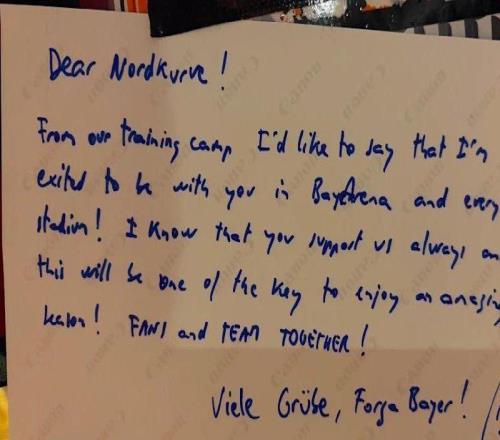 Dear Nordkurve!
From our training camp I'd like to say that I'm
exited to be with you in BayArena and every
stadion! I know that you support us always an
this will be one of the key to enjoy an amazing
season! FANS and TEAM TOGETHER!
Viele Grüße, Forza Bayer!
Canon